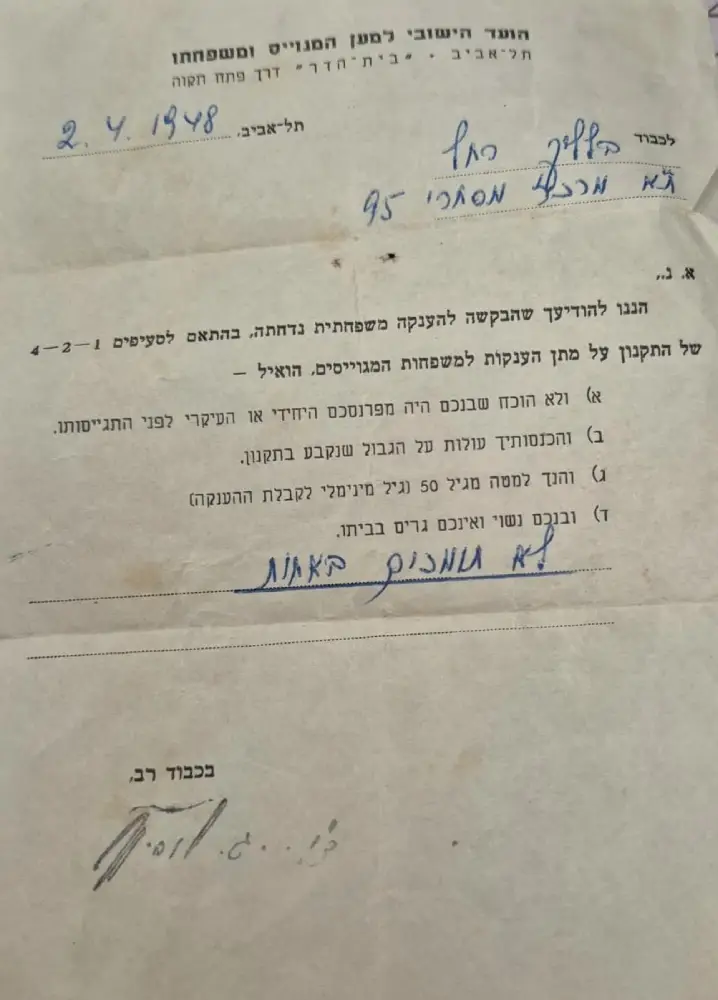 הועד הישובי למען המגוייס ומשפחתו
תל-אביב • "בית-הדר" דרך פתח תקוה
תל-אביב, 2.4.1948
לכבוד רחל
ת"א מרכז מסחרי 95
א. נ.,
הננו להודיעך שהבקשה להענקה משפחתית נדחתה, בהתאם לסעיפים 1—2—4
של התקנון על מתן הענקות למשפחות המגוייסים, הואיל —
א) ולא הוכח שבנכם היה מפרנסכם היחידי או העיקרי לפני התגייסותו.
ב) והכנסותיך עולות על הגבול שנקבע בתקנון.
ג) והנך למטה מגיל 50 (גיל מינימלי לקבלת ההענקה)
ד) ובנכם נשוי ואינכם גרים בביתו.
לא תומכים באחות
בכבוד רב,